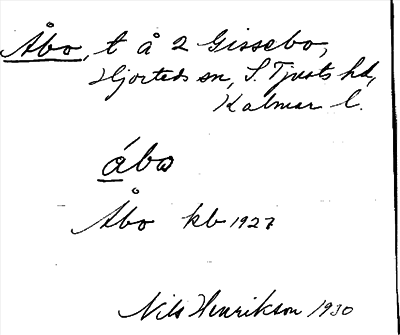 Åbo, t å 2 Gissebo,
Hjorteds sn, S. Tjusts hd,
Kalmar l.
ábω
Åbo kb 1927
Nils Henrikson 1930